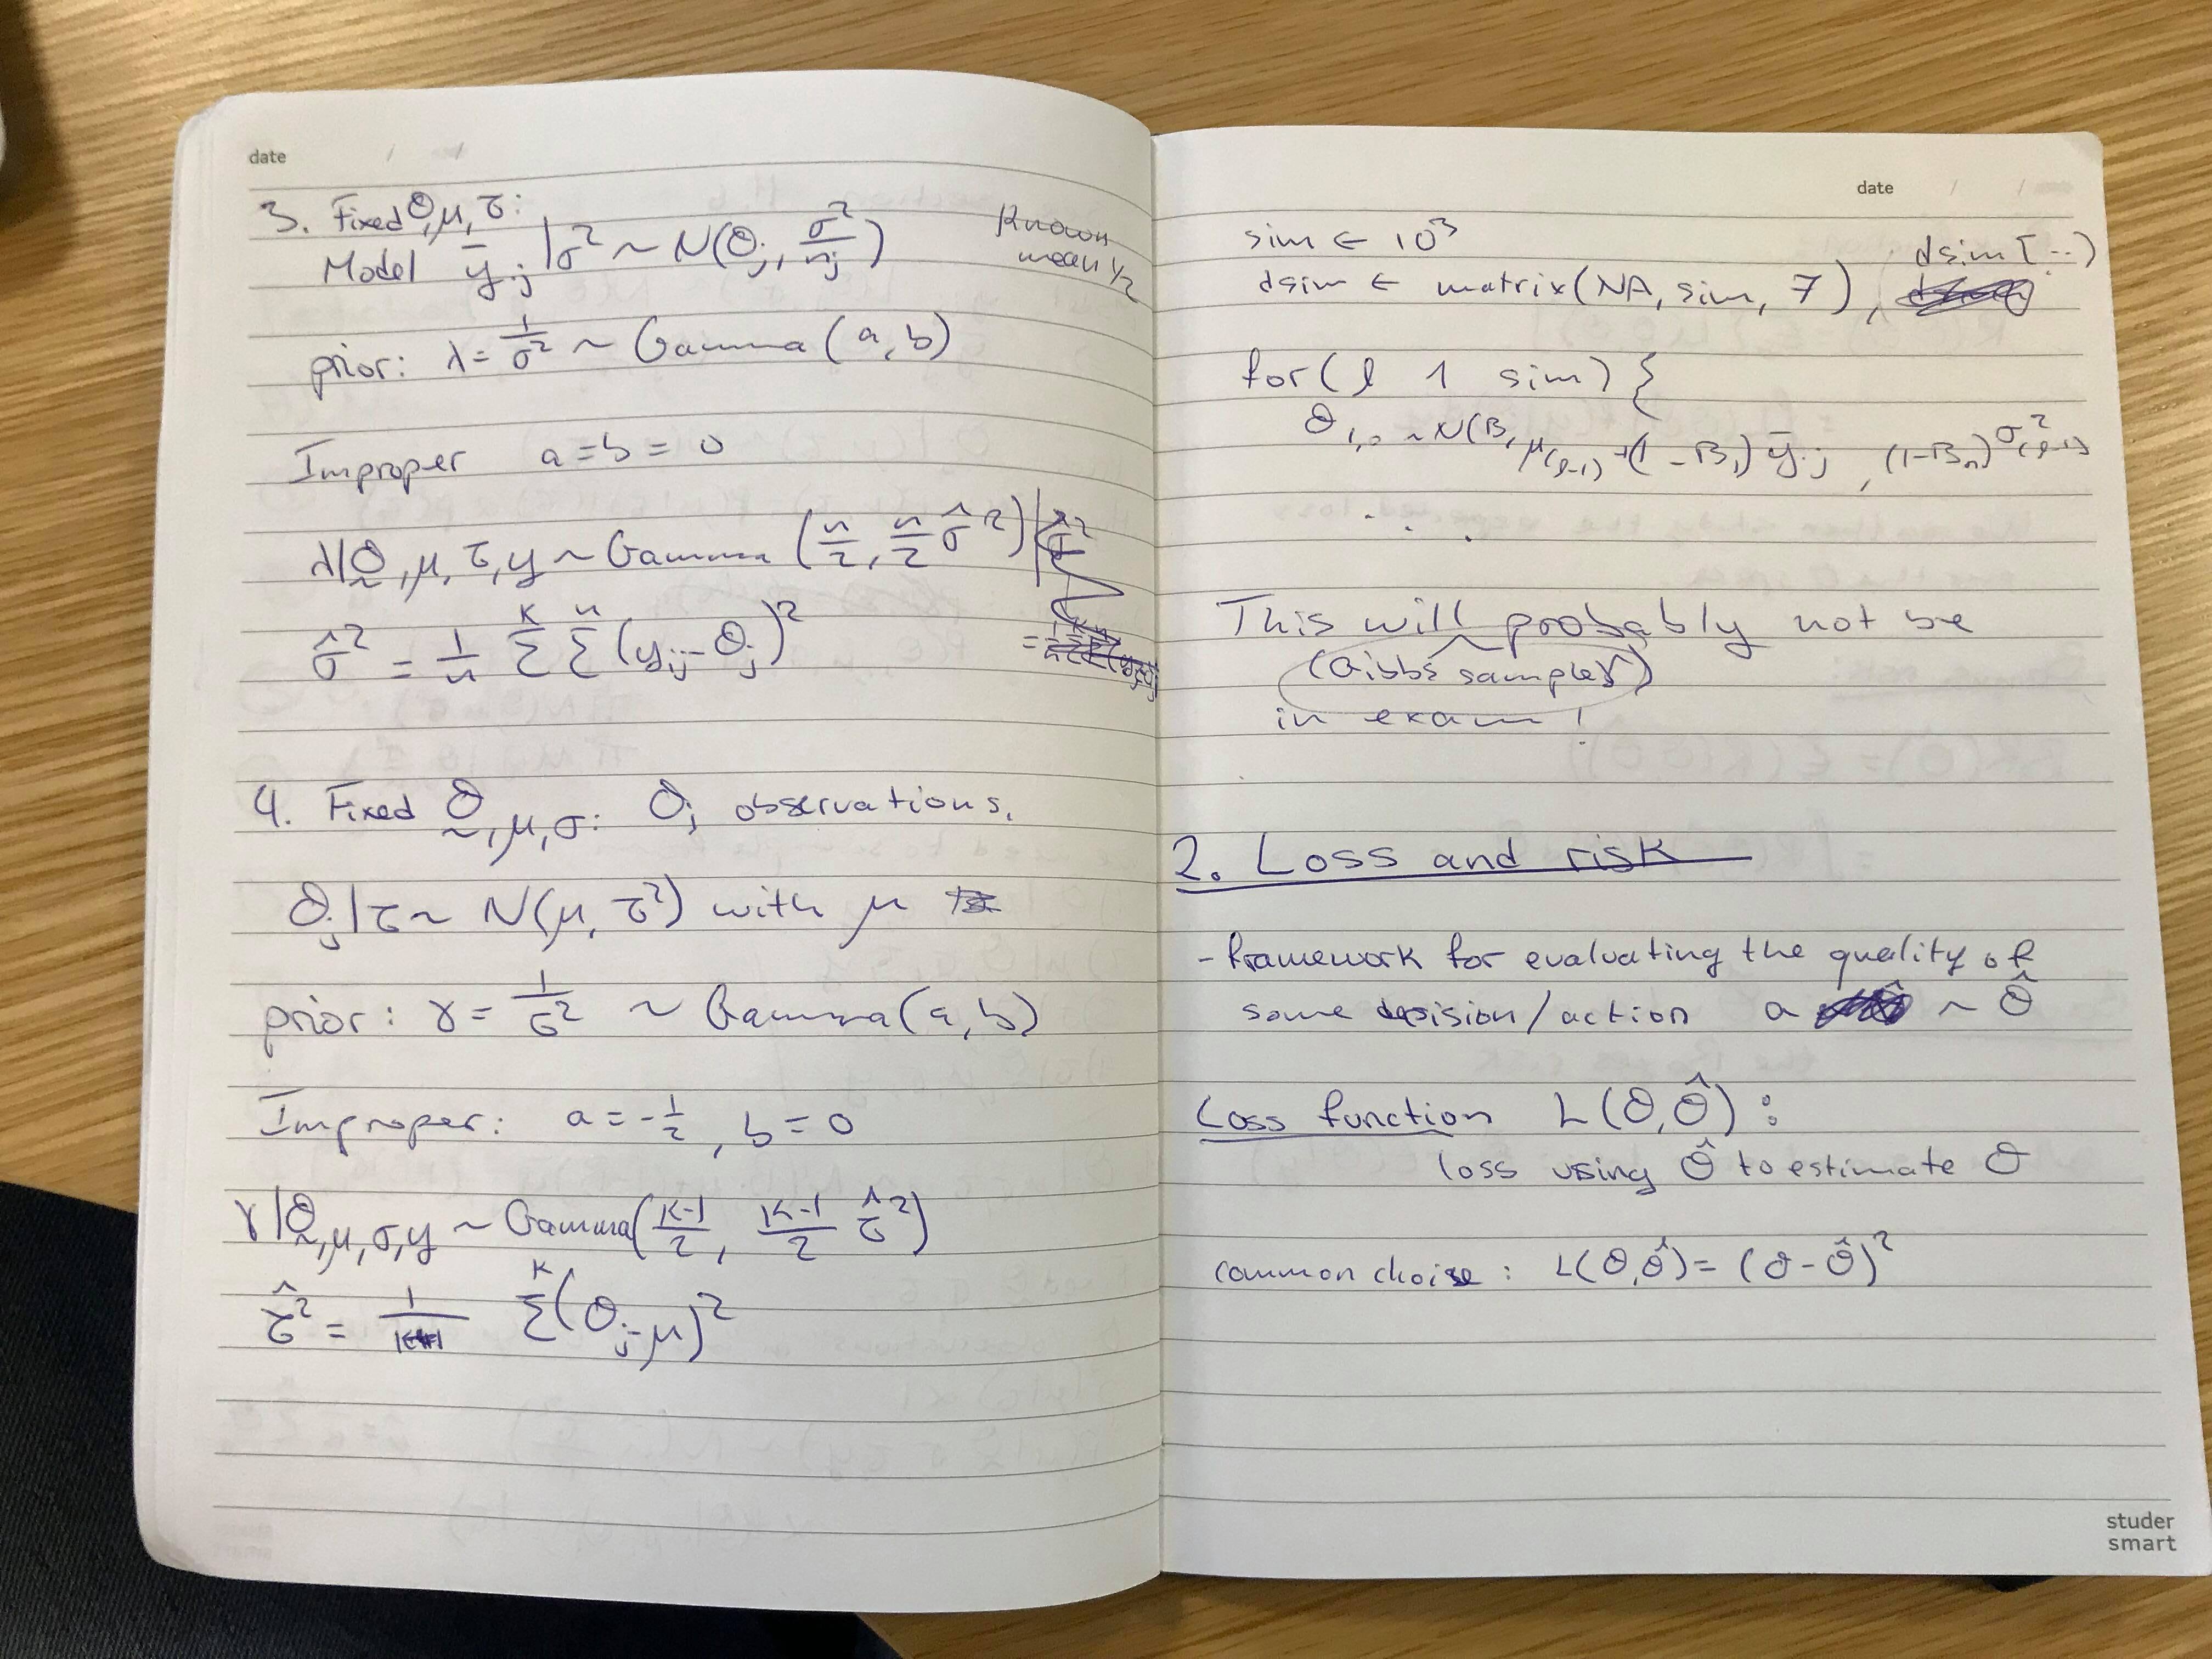 date / /
3. Fixed θ, μ, τ:
Model ȳ.j | σ² ~ N(θj, σ²/nj)
known
mean 1/2
prior: λ = 1/σ² ~ Gamma(a, b)
Improper a = b = 0
λ|θ, μ, τ, y ~ Gamma(n/2, n/2 σ̂²)
σ̂² = 1/n Σ^K Σ^n (yij - θj)²
4. Fixed θ, μ, σ: θj observations.
θj|τ ~ N(μ, τ²) with μ
prior: γ = 1/τ² ~ Gamma(a, b)
Improper: a = -1/2, b = 0
γ|θ, μ, σ, y ~ Gamma(K-1/2, K-1/2 τ̂²)
τ̂² = 1/K-1 Σ^K (θj - μ)²
date / /
sim ← 10³
dsim ← matrix(NA, sim, 7), dsim[..)
for(l 1 sim) {
θ1,. ~ N(B, μ(l-1) + (1 - B1) ȳ.j, (1-Bn) σ²(l-1)
. . .
This will probably not be
(Gibbs sampler)
in exam!
2. Loss and risk
- framework for evaluating the quality of
some decision/action a ~ θ̂
Loss function L(θ, θ̂):
loss using θ̂ to estimate θ
common choise: L(θ, θ̂) = (θ - θ̂)²
studer
smart